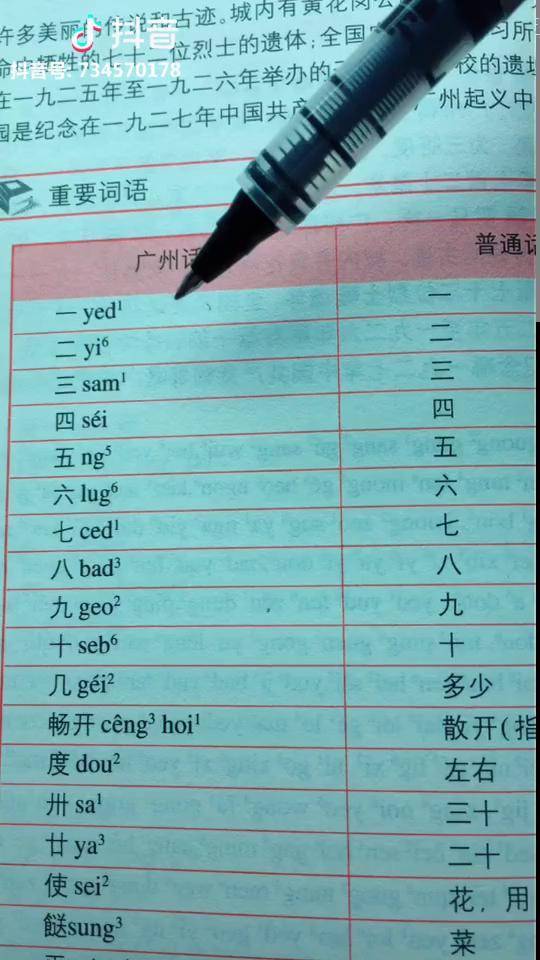 许多美丽的传说和古迹。城内有黄花岗公
抖音
抖音号: 734570178
位烈士的遗体;全国
习所
在一九二五年至一九二六年举办的
校的遗址
园是纪念在一九二七年中国共产
广州起义中
重要词语
广州话 普通话
一 yed¹ 一
二 yi⁶ 二
三 sam¹ 三
四 séi 四
五 ng⁵ 五
六 lug⁶ 六
七 ced¹ 七
八 bad³ 八
九 geo² 九
十 seb⁶ 十
几 géi² 多少
畅开 cêng³ hoi¹ 散开(指
度 dou² 左右
卅 sa¹ 三十
廿 ya³ 二十
使 sei² 花，用
餸sung³ 菜